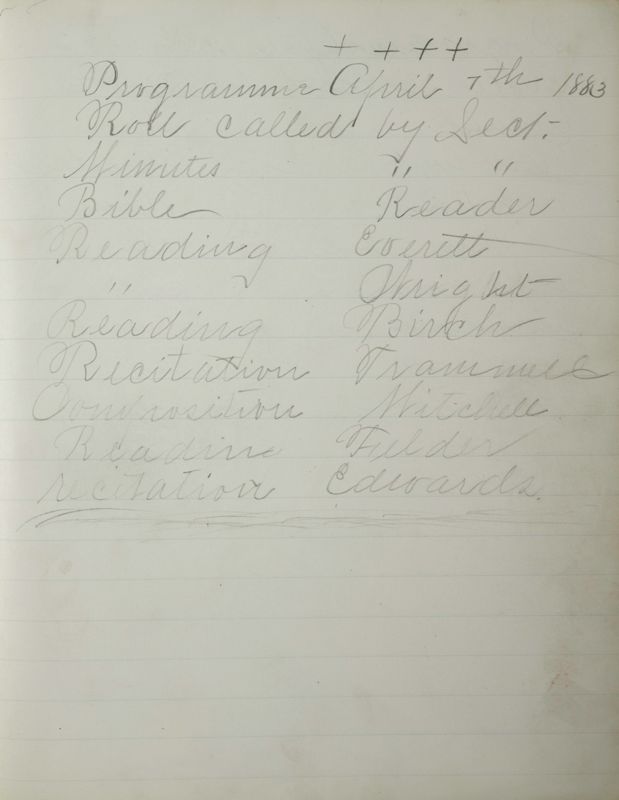 + + + +
Programme April 7th 1883
Roll called by Sect.
Minutes " "
Bible Reader
Reading Everett
" " Wright
Reading Birch
Recitation Trammell
Composition Mitchell
Reading Fielder
recitation Edwards.